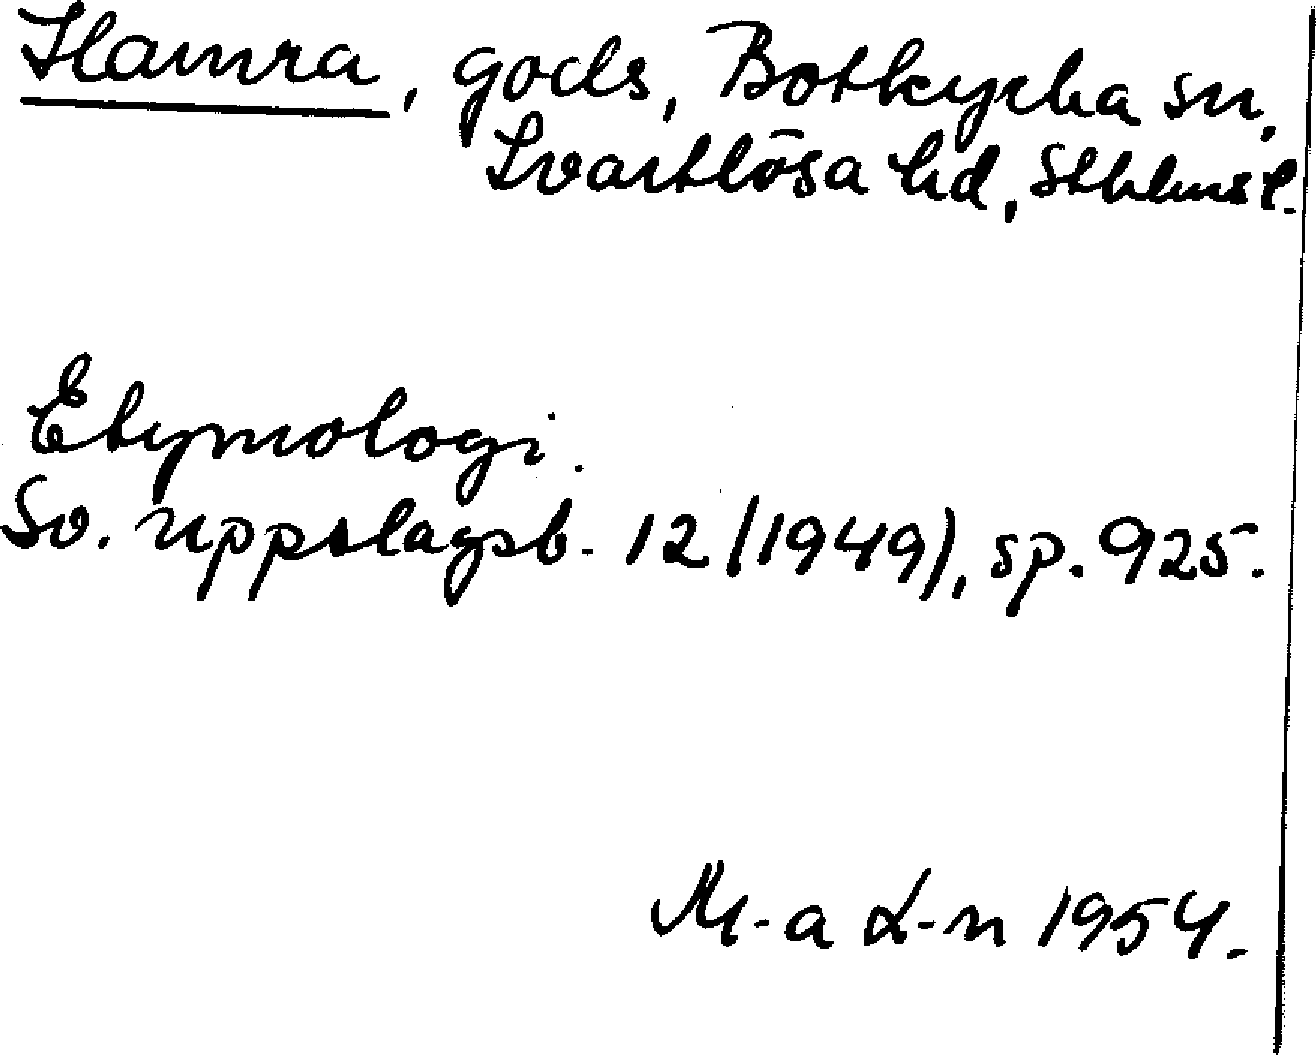 Hamra, gods, Botkyrka sn,
Svartlösa hd, Sthlms l.
Etymologi.
Sv. uppslagsb. 12 (1949), sp. 925.
M-a L-n 1954.